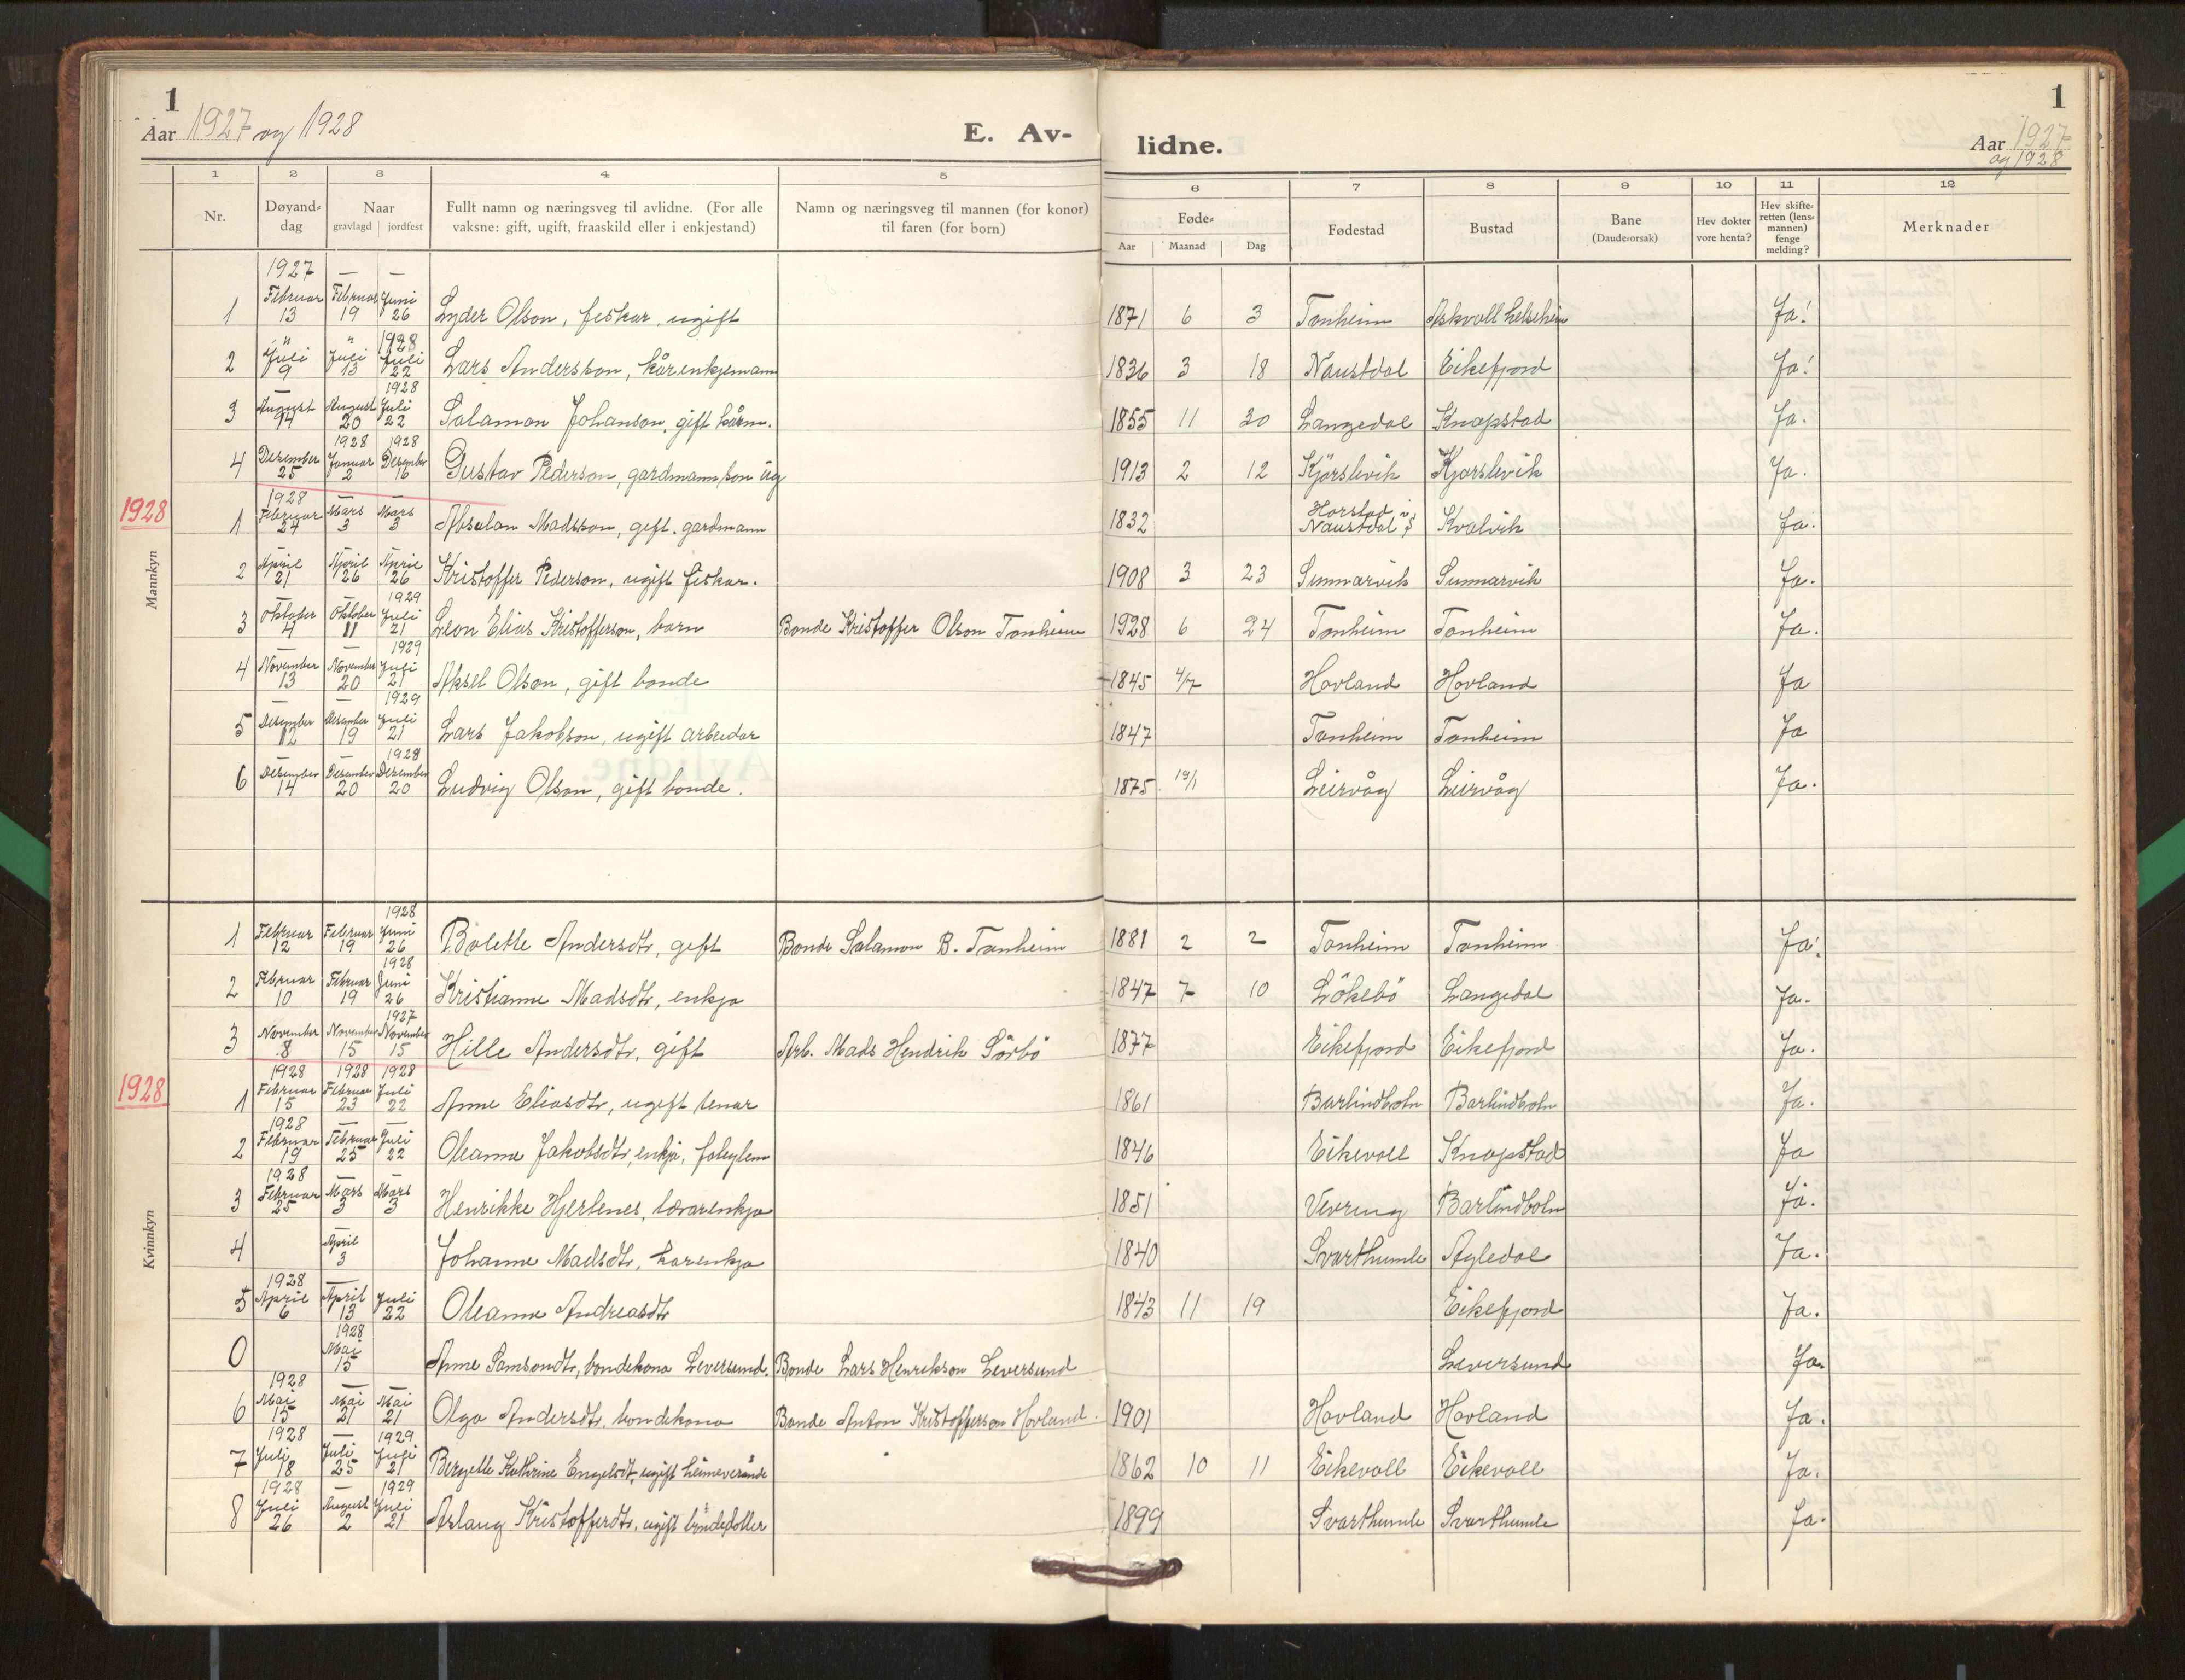 1
Aar 1927 og 1928
E. Av-
lidne.
1
Aar 1927
og 1928
1 2 3 4 5 6 7 8 9 10 11 12
Nr.
Døyand-dag
Naar
gravlagd | jordfest
Fullt namn og næringsveg til avlidne. (For alle vaksne: gift, ugift, fraaskild eller i enkjestand)
Namn og næringsveg til mannen (for konor) til faren (for born)
Føde-
Aar Maanad Dag
Fødestad
Bustad
Bane (Daudsorsak)
Hev dokter vore henta?
Hev skifte-retten (lens-mannen) fenge melding?
Merknader
Mannkyn
1 1927 Februar 13 — Februar 19 — Juni 26 Lyder Olson, fiskar, ugift 1871 6 3 Tonheim Askvoll helseheim Ja!
2 " Juli 9 " Juli 13 1928 Juli 22 Lars Andersson, kårenkjemann 1836 3 18 Naustdal Eikefjord Ja!
3 — August 14 August 20 1928 Juli 22 Salamon Johanson, gift kårm. 1855 11 30 Langedal Knapstad Ja.
4 Desember 25 1928 Januar 2 1928 Desember 16 Gustav Pederson, gardmannson ug 1913 2 12 Kjörslevik Kjorslevik Ja.
1928
1 1928 Februar 24 — Mars 3 — Mars 3 Absalon Madsson, gift. gardmann 1832 Horstad i Naustdal S Kvalvik Ja.
2 — April 21 — April 26 — April 26 Kristoffer Pederson, ugift fiskar. 1908 3 23 Sunnarvik Sunnarvik Ja.
3 — Oktober 4 — Oktober 11 1929 Juli 21 Leon Elias Kristofferson, barn Bonde Kristoffer Olson Tonheim 1928 6 24 Tonheim Tonheim Ja.
4 — November 13 — November 20 1929 Juli 21 Aksel Olson, gift bonde 1845 4/7 Hovland Hovland Ja
5 — Desember 12 — Desember 19 1929 Juli 21 Lars Jakobson, ugift arbeidar 1847 Tonheim Tonheim Ja
6 — Desember 14 — Desember 20 1928 Desember 20 Ludvig Olson, gift bonde. 1875 19/1 Leirvåg Leirvåg Ja.
Kvinnkyn
1 Februar 12 Februar 19 1928 Juni 26 Bolette Andersdtr, gift Bonde Salamon B. Tonheim 1881 2 2 Tonheim Tonheim Ja.
2 Februar 10 Februar 19 1928 Juni 26 Kristianne Madsdtr, enkja 1847 7 10 Lökebö Langedal Ja.
3 November 8 November 15 1927 November 15 Hille Andersdtr, gift Arb. Mads Hendrik Sörbö 1877 Eikefjord Eikefjord Ja.
1928
1 1928 Februar 15 1928 Februar 23 1928 Juli 22 Anne Eliasdtr, ugift tenar 1861 Barlindbotn Barlindbotn Ja.
2 1928 Februar 19 — Februar 25 — Juli 22 Oleanne Jakobsdtr, enkje, 1846 Eikevoll Knapstad Ja
3 1928 Februar 25 — Mars 3 — Mars 3 Henrikke Hjertenes, lærarenkja 1851 Vevring Barlindbotn Ja.
4 April 3 Johanne Madsdtr, karenkja 1840 Svarthumle Agledal Ja.
5 1928 April 6 — April 13 Juli 22 Oleanne Andreasdtr 1843 11 19 Eikefjord Ja.
0 1928 Mai 15 Anne Samsondtr, bondekona Leversund. Bonde Lars Henrikson Leversund Leversund Ja.
6 1928 Mai 15 — Mai 21 — Mai 21 Olga Andersdtr, bondekona Bonde Anton Kristofferson Hovland. 1901 Hovland Hovland Ja.
7 1928 Juli 18 — Juli 25 1929 Juli 21 Bergette Kathrine Engelsdt, ugift heimeverande 1862 10 11 Eikevoll Eikevoll Ja.
8 1928 Juli 26 — August 2 1929 Juli 21 Aslaug Kristofferdtr, ugift bondedotter 1899 Svarthumle Svarthumle Ja.